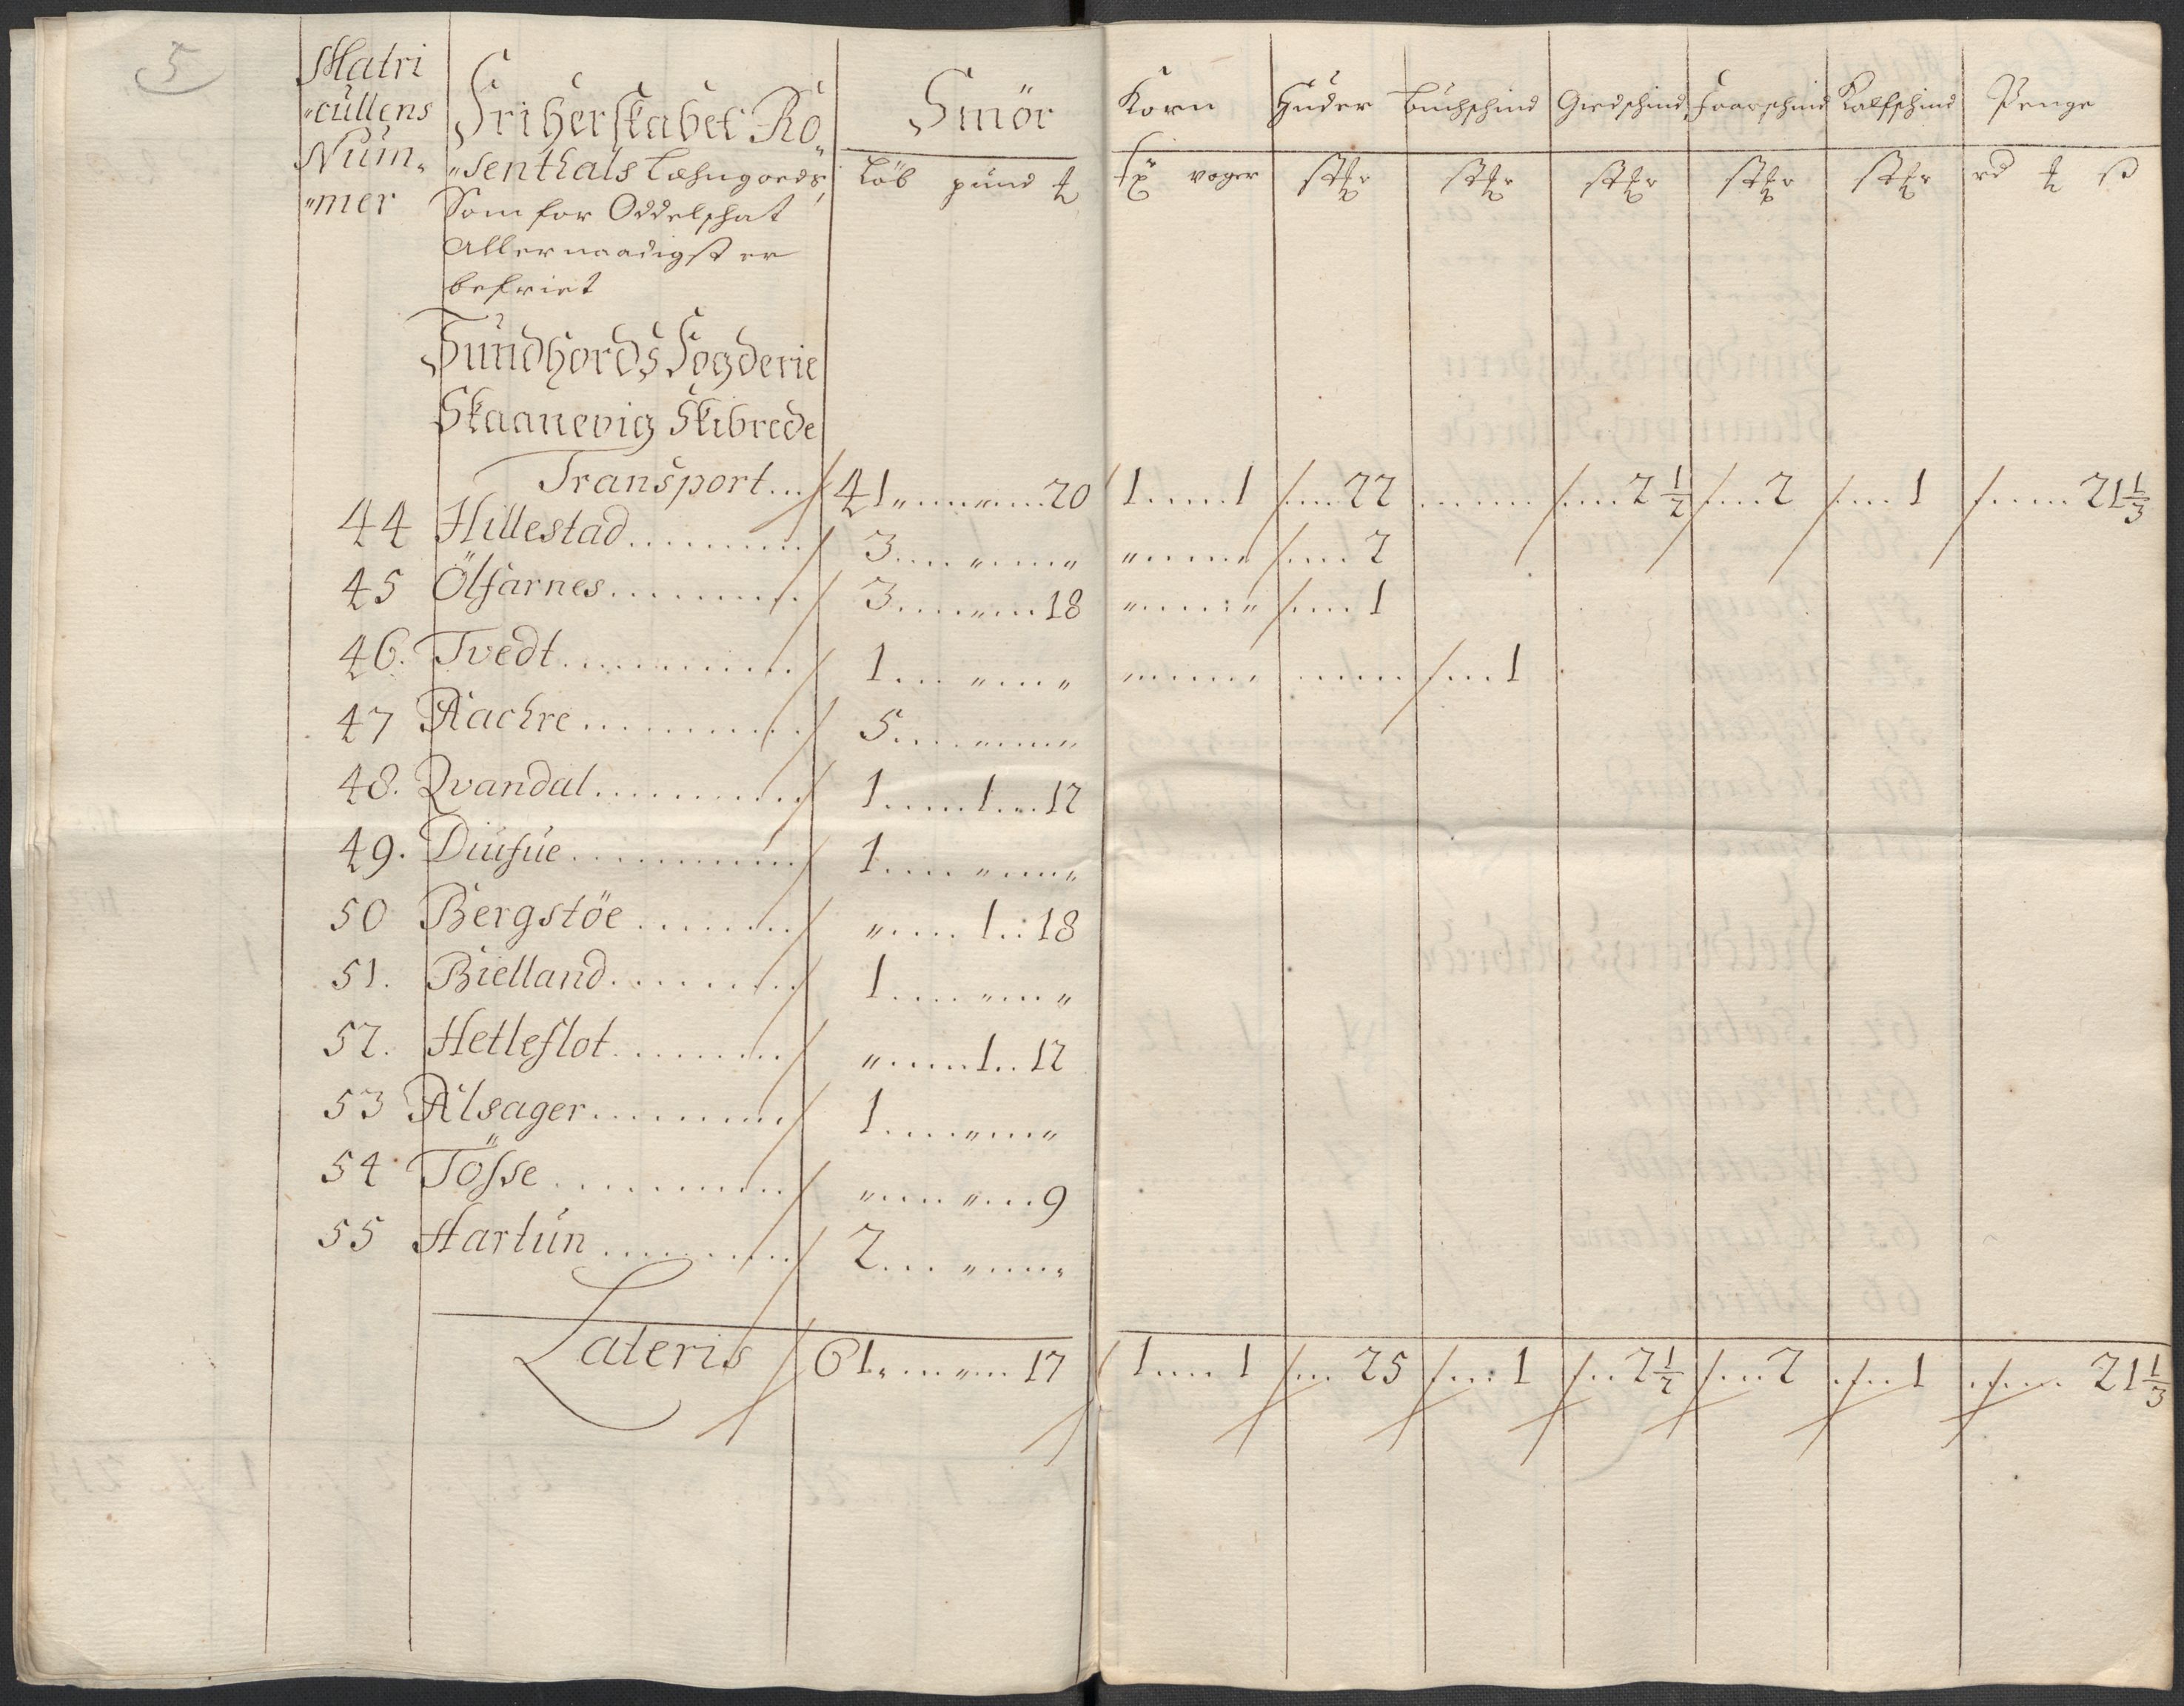 5
Matri
"cullens
Num"
"mer
Friherskabet Ro"
"senthals Læhngoeds,
Som for Oddelschat
Allernaadigst er
befriet
Smör
Löb pund ℔
Korn
voger
Huder
Buchschind
Giedschind
Faarschind
Kalfschind
Penge
rd ß
Sundhords Fogderie
Skaanevig Skibrede
Transport... 41 " 20 1 1 22 2 1/2 2 1 21 1/3
44 Hillestad 3 " " " " 2
45 Ölfarnes 3 " 18 " " 1
46. Tvedt 1 " " 1
47 Aachre 5 " "
48. Qvandal 1 1 12
49. Diufue 1 " "
50 Bergstöe " 1 18
51. Bielland 1 " "
52. Hetleflot " 1 12
53 Alsager 1 " "
54 Tösse " " 9
55 Hartun 2 " "
Lateris 61 " 17 1 1 25 1 2 1/2 2 1 21 1/3